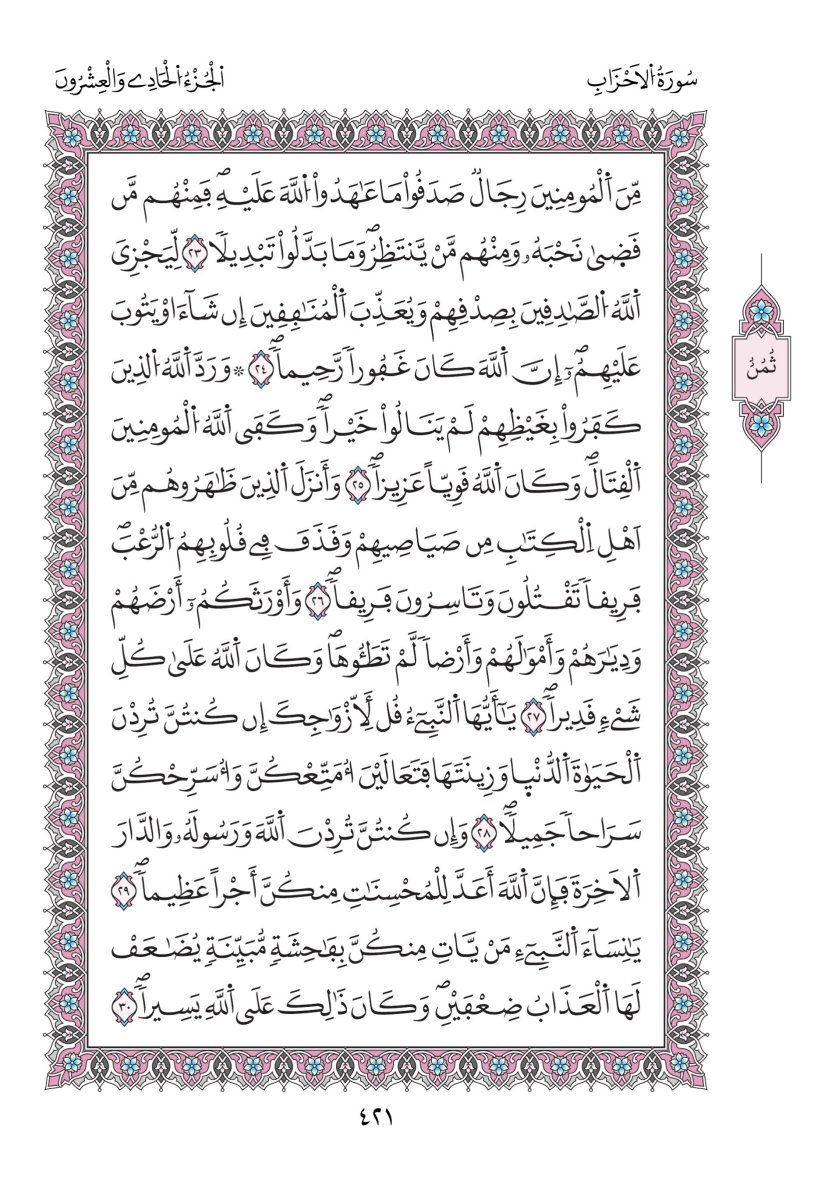 سُورَةُ اُ۬لَاحْزَابِ
اَ۬لْجُزْءُ اُ۬لْحَادِے وَالْعِشْرُونَ
مِّنَ اَ۬لْمُومِنِينَ رِجَالٞ صَدَقُواْ مَا عَٰهَدُواْ اُ۬للَّهَ عَلَيْهِۖ فَمِنْهُم مَّن
قَض۪يٰ نَحْبَهُۥ وَمِنْهُم مَّنْ يَّنتَظِرُۖ وَمَا بَدَّلُواْ تَبْدِيلاٗۖ ٢٣ لِّيَجْزِيَ
اَ۬للَّهُ اُ۬لصَّٰدِقِينَ بِصِدْقِهِمْ وَيُعَذِّبَ اَ۬لْمُنَٰفِقِينَ إِن شَآءَ اَوْ يَتُوبَ
عَلَيْهِمُۥٓۖ إِنَّ اَ۬للَّهَ كَانَ غَفُوراٗ رَّحِيماٗۖ ٢٤ ۞ وَرَدَّ اَ۬للَّهُ اُ۬لذِينَ
كَفَرُواْ بِغَيْظِهِمْ لَمْ يَنَالُواْ خَيْراٗۖ وَكَفَي اَ۬للَّهُ اُ۬لْمُومِنِينَ
اَ۬لْقِتَالَۖ وَكَانَ اَ۬للَّهُ قَوِيّاً عَزِيزاٗۖ ٢٥ وَأَنزَلَ اَ۬لذِينَ ظَٰهَرُوهُم مِّنَ
اَهْلِ اِ۬لْكِتَٰبِ مِن صَيَاصِيهِمْ وَقَذَفَ فِے قُلُوبِهِمُ اُ۬لرُّعْبَۖ
فَرِيقاٗ تَقْتُلُونَ وَتَاسِرُونَ فَرِيقاٗۖ ٢٦ وَأَوْرَثَكُمُۥٓ أَرْضَهُمْ
وَدِيَٰرَهُمْ وَأَمْوَٰلَهُمْ وَأَرْضاٗ لَّمْ تَطَـُٔوهَاۖ وَكَانَ اَ۬للَّهُ عَلَىٰ كُلِّ
شَےْءٖ قَدِيراٗۖ ٢٧ يَٰٓأَيُّهَا اَ۬لنَّبِےٓءُ قُل لِّأَزْوَٰجِكَ إِن كُنتُنَّ تُرِدْنَ
اَ۬لْحَيَوٰةَ اَ۬لدُّنْي۪ا وَزِينَتَهَا فَتَعَالَيْنَ أُمَتِّعْكُنَّ وَأُسَرِّحْكُنَّ
سَرَاحاٗ جَمِيلاٗۖ ٢٨ وَإِن كُنتُنَّ تُرِدْنَ اَ۬للَّهَ وَرَسُولَهُۥ وَالدَّارَ
اَ۬لَاخِرَةَ فَإِنَّ اَ۬للَّهَ أَعَدَّ لِلْمُحْسِنَٰتِ مِنكُنَّ أَجْراً عَظِيماٗۖ ٢٩
يَٰنِسَآءَ اَ۬لنَّبِےٓءِ مَنْ يَّاتِ مِنكُنَّ بِفَٰحِشَةٖ مُّبَيِّنَةٖ يُضَٰعَفْ
لَهَا اَ۬لْعَذَابُ ضِعْفَيْنِۖ وَكَانَ ذَٰلِكَ عَلَى اَ۬للَّهِ يَسِيراٗۖ ٣٠
ثُمُنُ
٤٢١